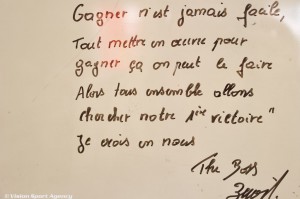 Gagner n'est jamais facile,
Tout mettre en œuvre pour
gagner ça on peut le faire
Alors tous ensemble allons
chercher notre 1ère victoire"
Je crois en nous
The Boss